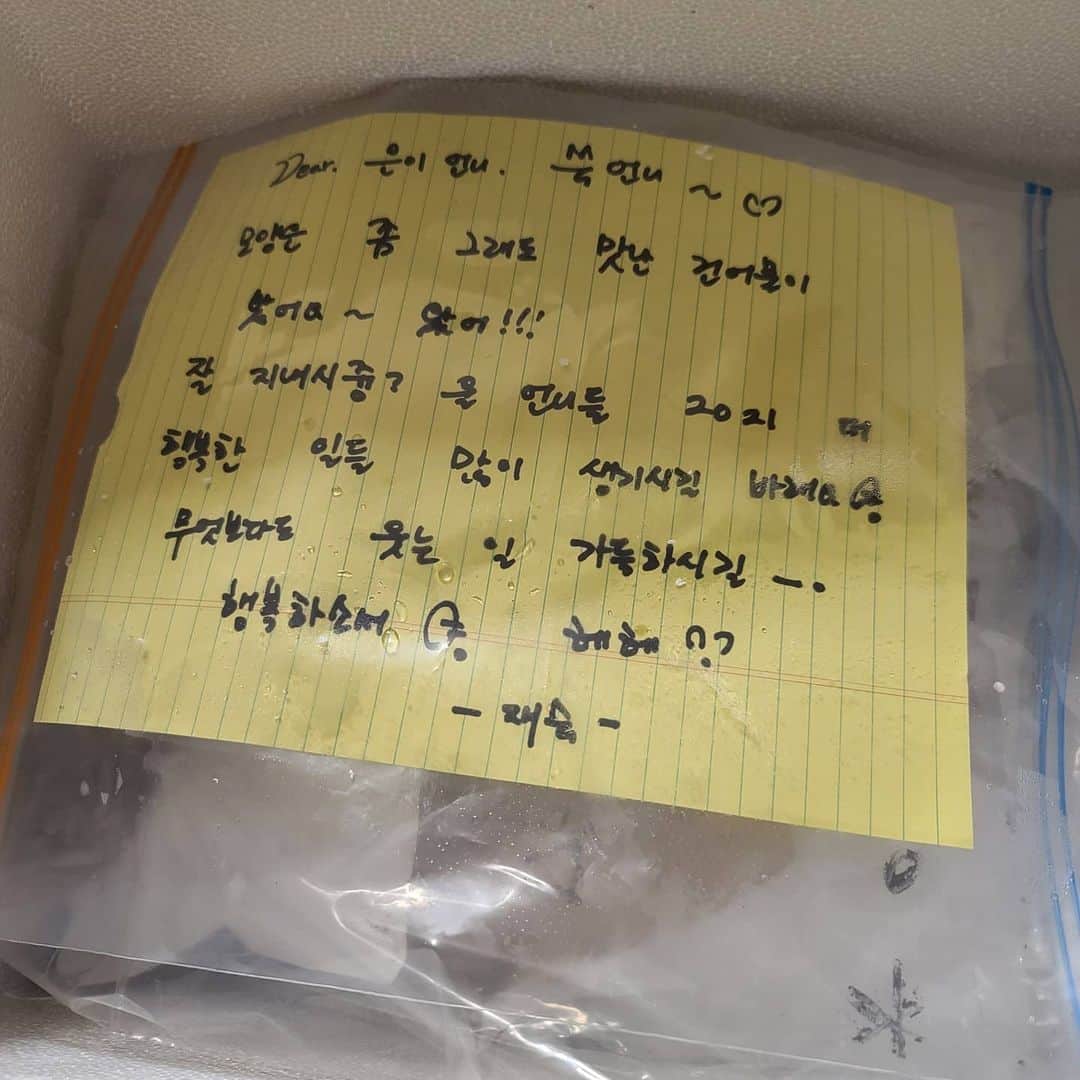 Dear. 은이 언니. 쑥언니 ~ ♡
모양은 좀 그래도 맛난 건어물이
왔어요 ~ 왔어!!!
잘 지내시쥬? 울 언니들 2021 더
행복한 일들 많이 생기시길 바래요
무엇보다도 웃는 일 가득하시길 ㅡ.
행복하소서 헤헤 ??
- 재숙 -